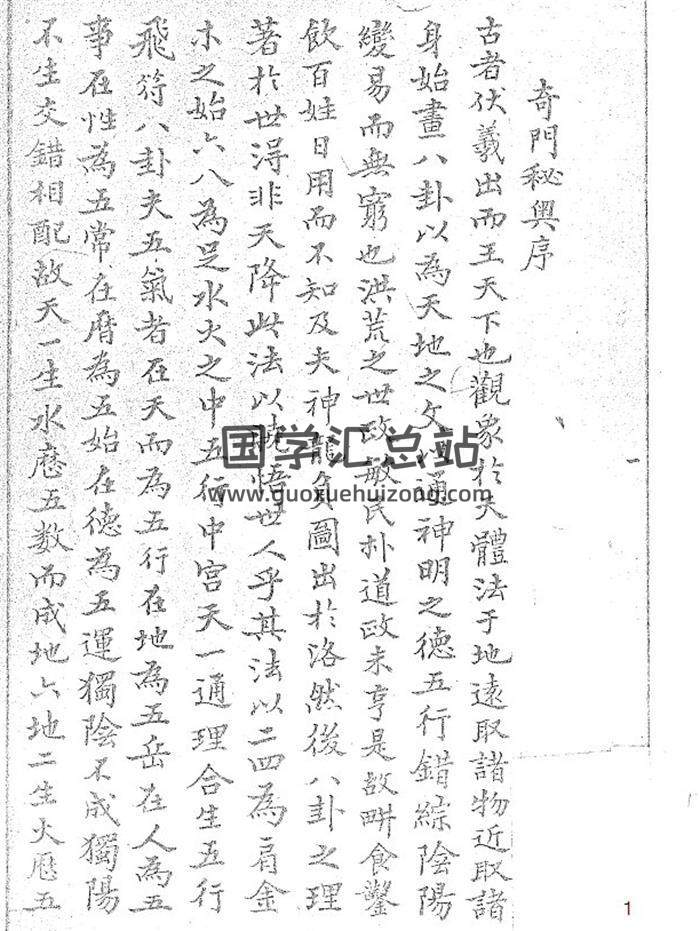 奇門秘奧序
古者伏羲出而王天下也觀象於天體法于地遠取諸物近取諸
身始畫八卦以為天地之文以通神明之德五行錯綜陰陽
變易而無窮也洪荒之世政敏民朴道政未亨是故畊食鑿
飲百姓日用而不知及夫神龍負圖出於洛然後八卦之理
著於世得非天降此法以曉悟世人乎其法以二四為肩金
木之始六八為足水火之中五行中宮天一通理合生五行
飛符八卦夫五氣者在天而為五行在地為五岳在人為五
事在性為五常在曆為五始在德為五運獨陰不成獨陽
不生交錯相配故天一生水應五數而成地六地二生火應五
国学汇总站
www.guoxuehuizong.com
1